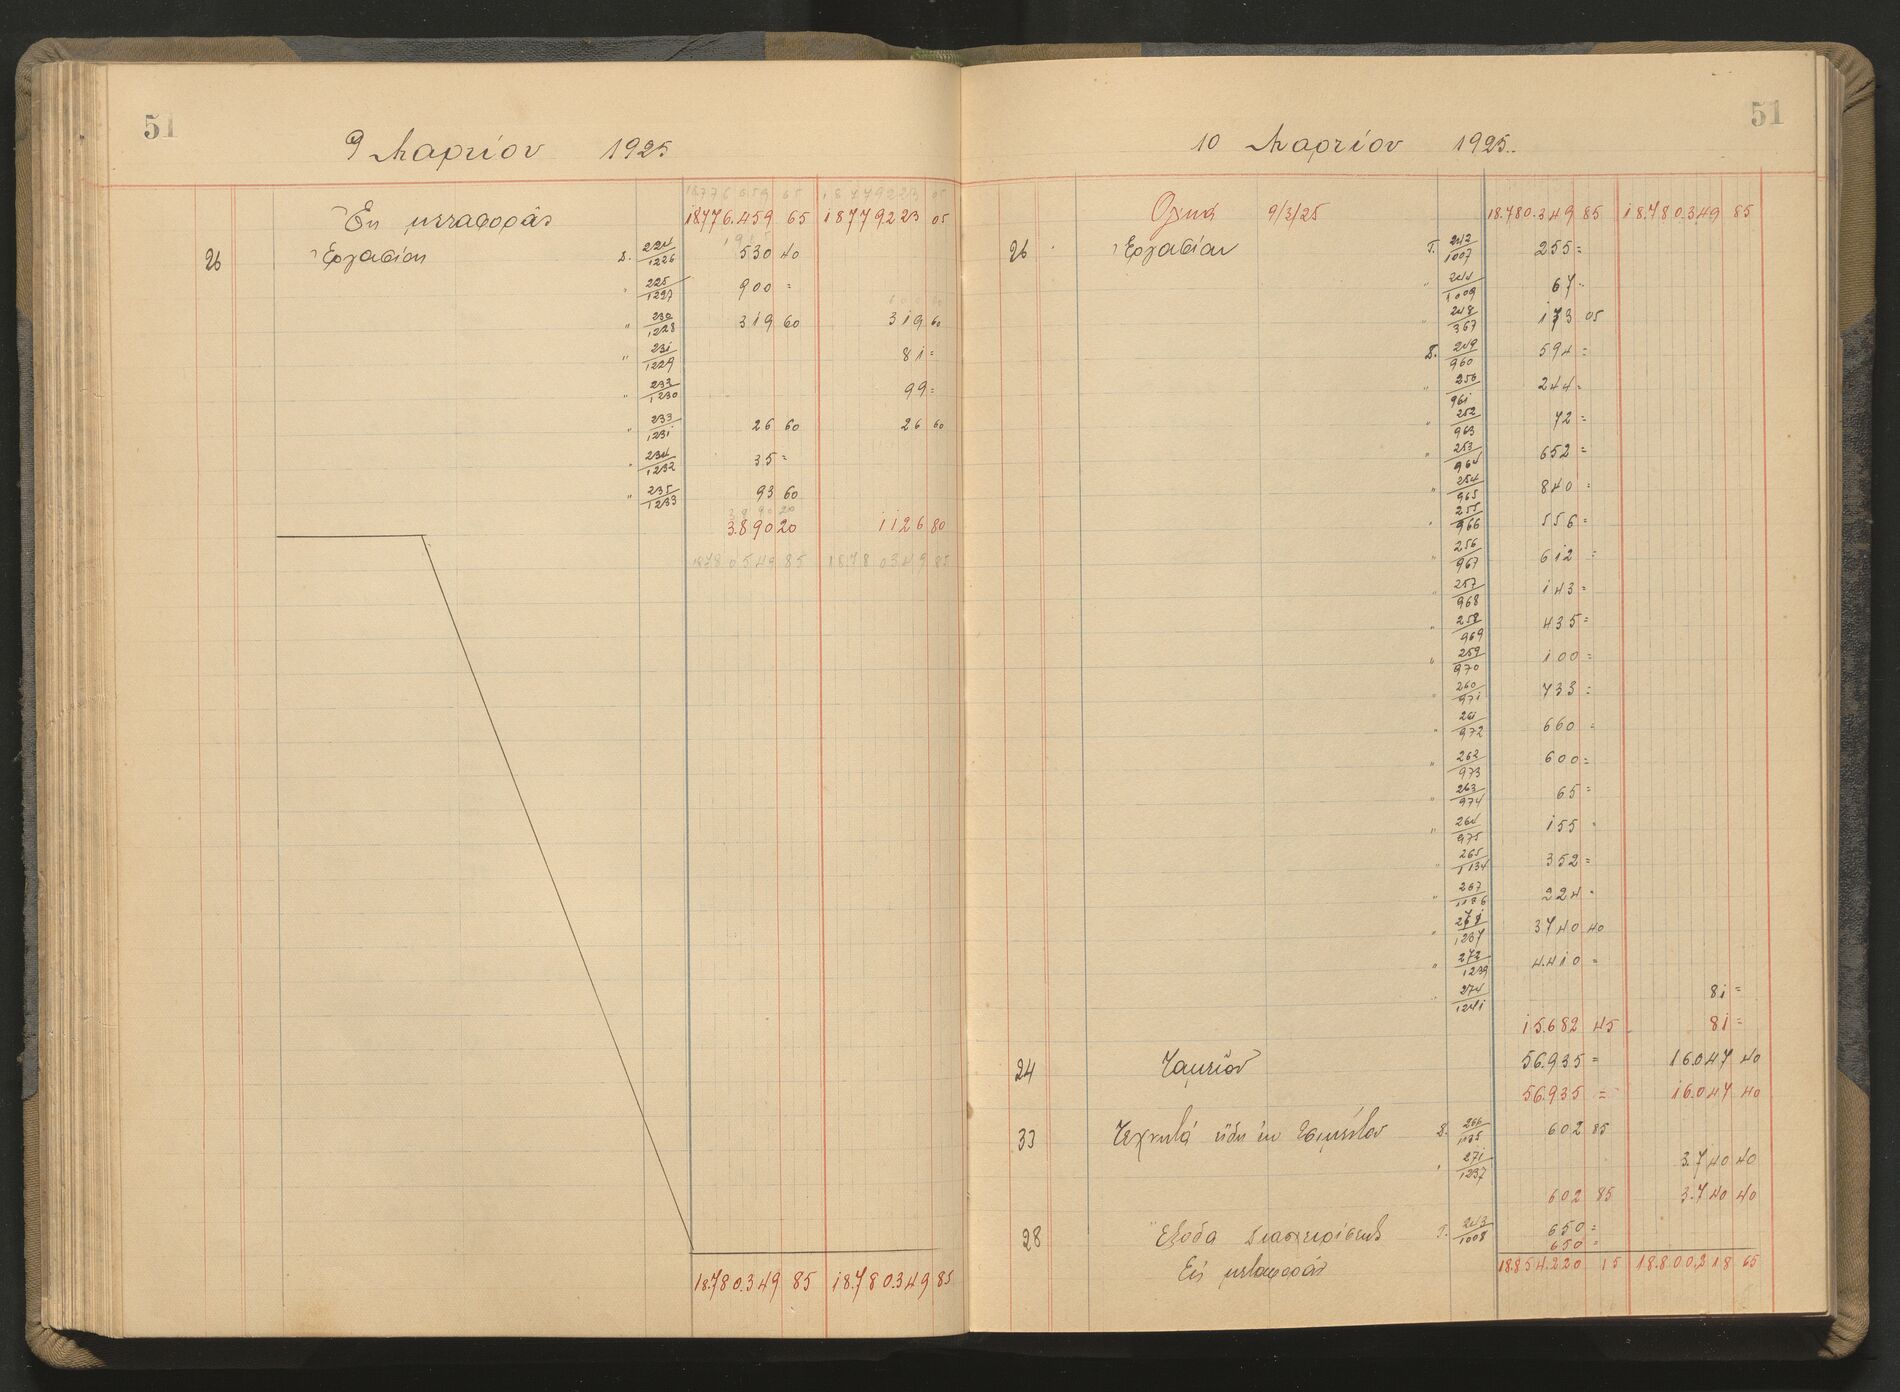 51
9 Μαρτίου 1925
18776659 65 18779223 05
Ἐκ μεταφορᾶς 18776.459 65 18779223 05
26 Ἐργασίαι Δ. 224/1226 530 40
" 225/1227 900 =
" 230/1228 319 60 319 60
" 231/1229 81 =
" 232/1230 99 =
" 233/1231 26 60 26 60
" 234/1232 35 =
" 235/1233 93 60
3890 20
3.890 20 1126 80
18780349 85 18780349 85
18.780.349 85 18.780.349 85
51
10 Μαρτίου 1925..
Ὁλικά 9/3/25 18.780.349 85 18.780.349 85
26 Ἐργασίαι Γ. 242/1007 255 =
" 244/1009 67 =
" 248/367 173 05
Δ. 249/960 594 =
" 250/961 244 =
" 252/963 72 =
" 253/964 652 =
" 254/965 840 =
" 255/966 556 =
" 256/967 612 =
" 257/968 143 =
" 258/969 435 =
" 259/970 100 =
" 260/971 733 =
" 261/972 660 =
" 262/973 600 =
" 263/974 65 =
" 264/975 155 =
" 265/1134 352 =
" 267/1136 224 =
" 271/1237 3740 40
" 272/1239 4.410 =
" 274/1241 81 =
15.682 45 81 =
24 Ταμεῖον 56.935 = 16.047 40
56.935 = 16.047 40
33 Τεχνητά εἴδη ἐκ τσιμέντου Δ. 266/1135 602 85
" 271/1237 3.740 40
602 85 3.740 40
28 Ἔξοδα Διαχειρίσεως Γ. 243/1008 650 =
650 =
Εἰς μεταφοράν 18.854.220 15 18.800.218 65